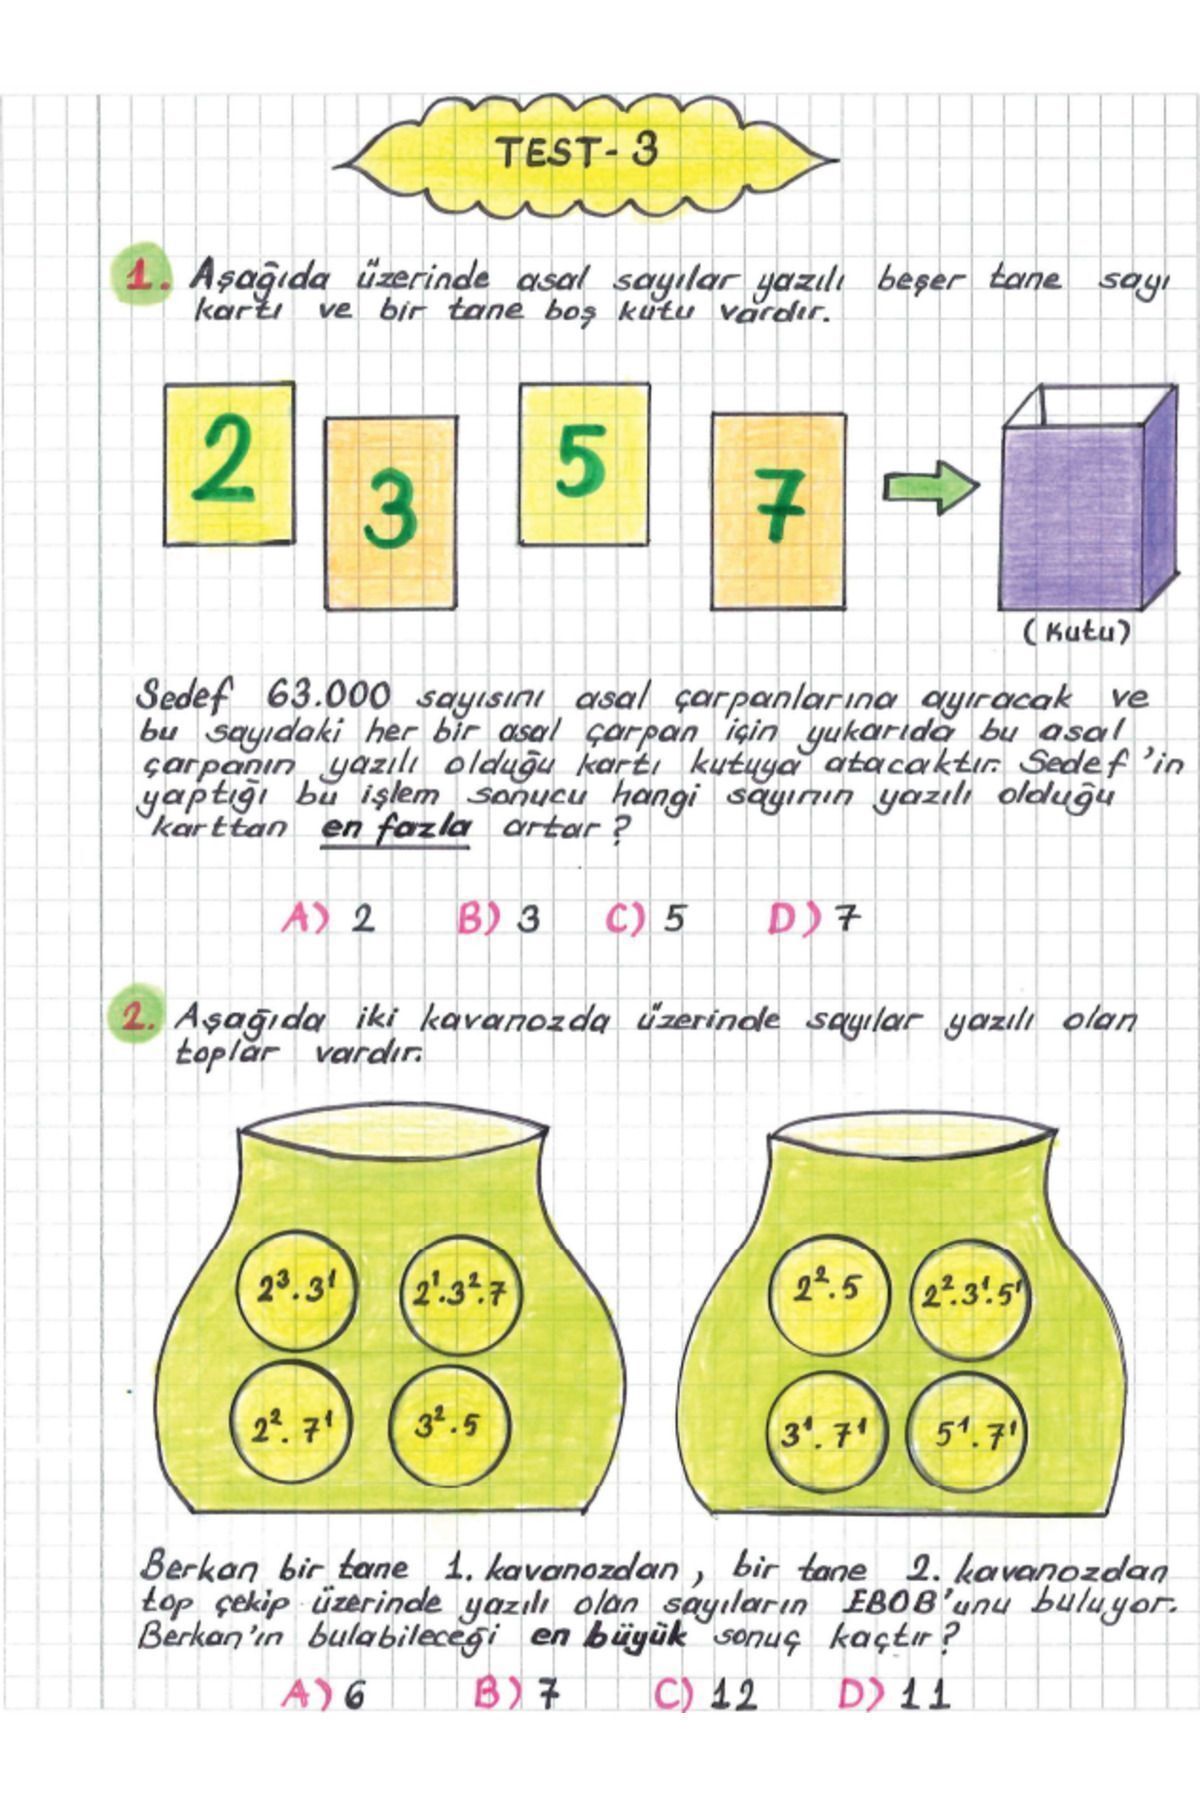 TEST-3
1. Aşağıda üzerinde asal sayılar yazılı beşer tane sayı
kartı ve bir tane boş kutu vardır.
2
3
5
7
(Kutu)
Sedef 63.000 sayısını asal çarpanlarına ayıracak ve
bu sayıdaki her bir asal çarpan için yukarıda bu asal
çarpanın yazılı olduğu kartı kutuya atacaktır. Sedef'in
yaptığı bu işlem sonucu hangi sayının yazılı olduğu
karttan en fazla artar?
A) 2 B) 3 C) 5 D) 7
2. Aşağıda iki kavanozda üzerinde sayılar yazılı olan
toplar vardır.
2³.3¹ 2¹.3².7 2².5 2².3¹.5¹
2².7¹ 3².5 3¹.7¹ 5¹.7¹
Berkan bir tane 1. kavanozdan, bir tane 2. kavanozdan
top çekip üzerinde yazılı olan sayıların EBOB'unu buluyor.
Berkan'ın bulabileceği en büyük sonuç kaçtır?
A) 6 B) 7 C) 12 D) 11